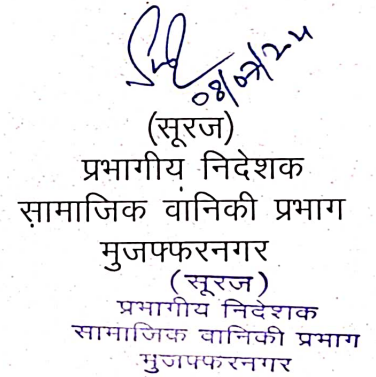 08/07/24
(सूरज)
प्रभागीय निदेशक
सामाजिक वांनिकी प्रभाग
मुजफ्फरनगर
(सूरज)
प्रभागीय निदेशक
सामाजिक वानिकी प्रभाग
मुजफ्फरनगर